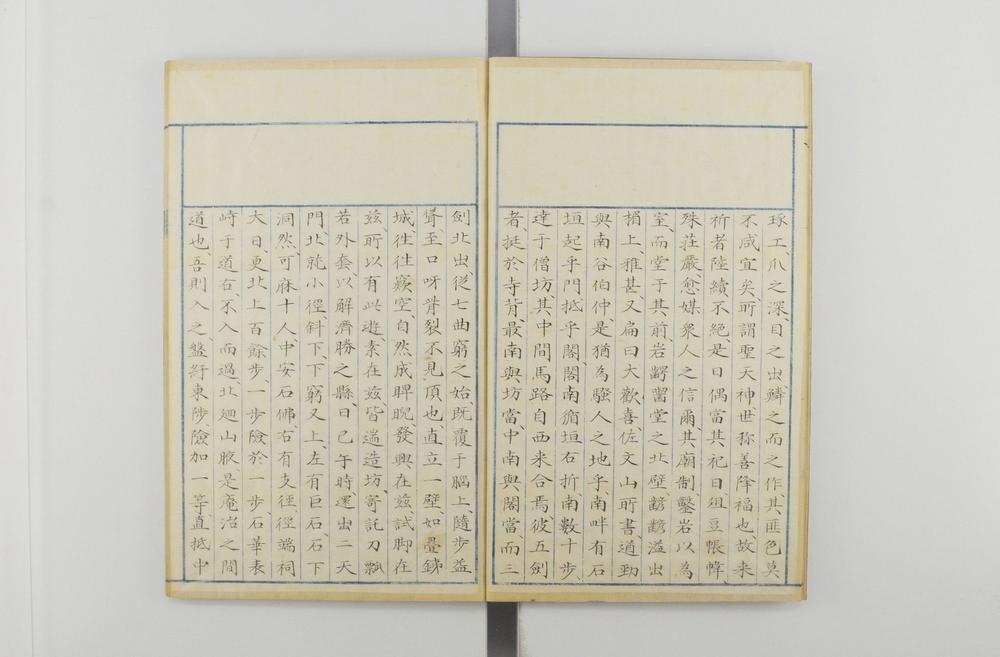 琢工、爪之深、目之出、鱗之而之作、其匪色莫
不咸宜矣、所謂聖天神世称善降福也、故来
祈者陸續不絶、是日偶當其祀日、俎豆帳幃、
殊荘嚴、愈媒衆人之信爾、其廟制鑿岩以為
室、而堂于其前、岩齶齧堂之北壁、齾齾溢出
楣上、雅甚、又扁曰大歡喜、佐文山所書、遒勁
與南谷伯仲、是猶為騒人之地乎、南畔有石
垣、起乎門、抵乎閣、閣南循垣石折、南數十步、
達于僧坊、其中間馬路自西来合焉、彼五劍
者、挺於寺背、最南與坊當、中南與閣當、而三
劍北出、從七曲窮之始、既覆于腦上、隨步益
聳、至口呀背裂不見頂也、直立一壁、如疊銕
城、往往竅空、自然成睥睨、發興在茲、試脚在
茲、所以有此遊、素在茲、皆遄造坊、寄託刀瓢
若外套、以解濟勝之縣、日已午時、還出二天
門、北就小徑、斜下、下窮又上、左有巨石、石下
洞然、可庥十人、中安石佛、右有支徑、徑端祠
大日、更北上百餘步、一步險於一步、石華表
峙于道右、不入而過、北廻山腋、是庵治之間
道也、吾則入之、盤紆東陟、險加一等、直抵中